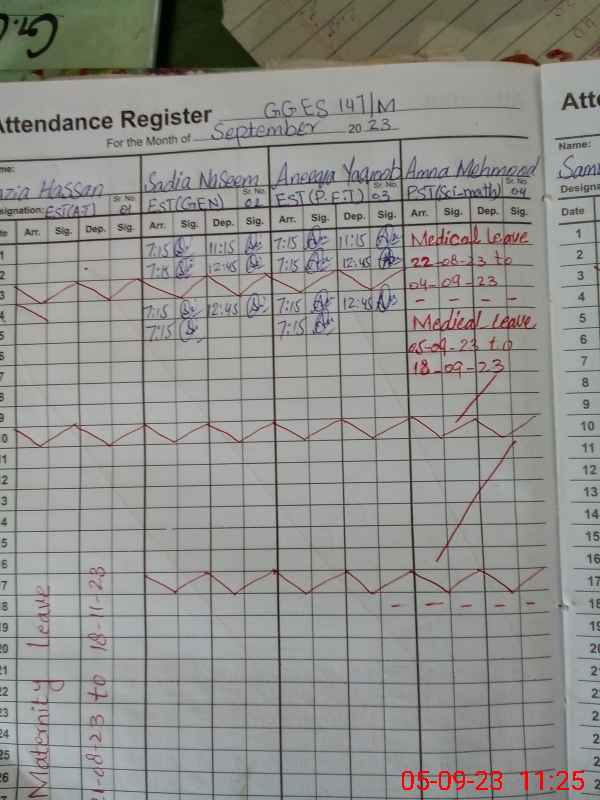 Attendance Register GGES 147/M
For the Month of September 2023
Name:
azia Hassan Sadia Naseem Aneeqa Yaqoob Amna Mehmood
Designation: EST(AT) Sr. No. 01 EST(GEN) Sr. No. 02 EST(P.E.T) Sr. No. 03 PST(Sci-math) Sr. No. 04
Arr. Sig. Dep. Sig. Arr. Sig. Dep. Sig. Arr. Sig. Dep. Sig. Arr. Sig. Dep. Sig.
1 7:15 11:15 7:15 11:15 Medical Leave
2 7:15 12:45 7:15 12:45 22-08-23 to
3 04-09-23
4 7:15 12:45 7:15 12:45 - - - -
5 7:15 7:15 Medical Leave
6 05-09-23 to
7 18-09-23
8
9
0
11
2
3
4
5
6
7
18 - - - - -
9
20
21
22
23
24
25
26
Maternity Leave
-08-23 to 18-11-23
Atte
Name:
Sam
Designa
Date
1
2
3
4
5
6
7
8
9
10
11
12
13
14
15
16
17
18
19
20
21
2
2
2
2
2
05-09-23 11:25